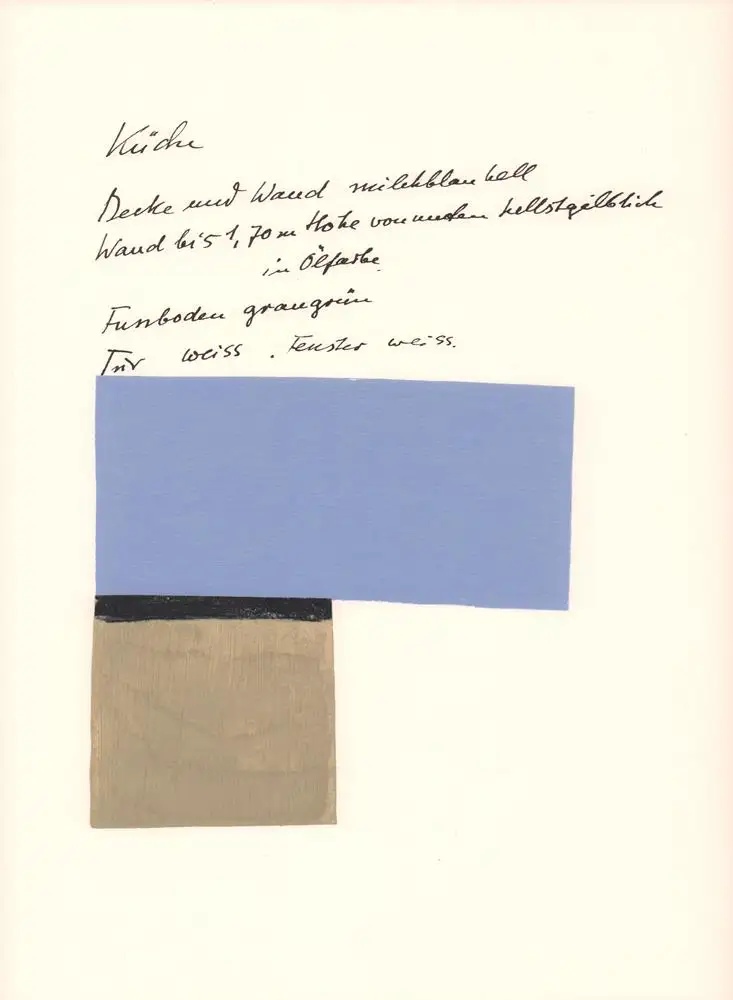 Küche
Decke und Wand milchblau hell
Wand bis 1,70 m Höhe von unten hellstgelblich
in Ölfarbe.
Fussboden graugrün
Tür weiss . Fenster weiss.